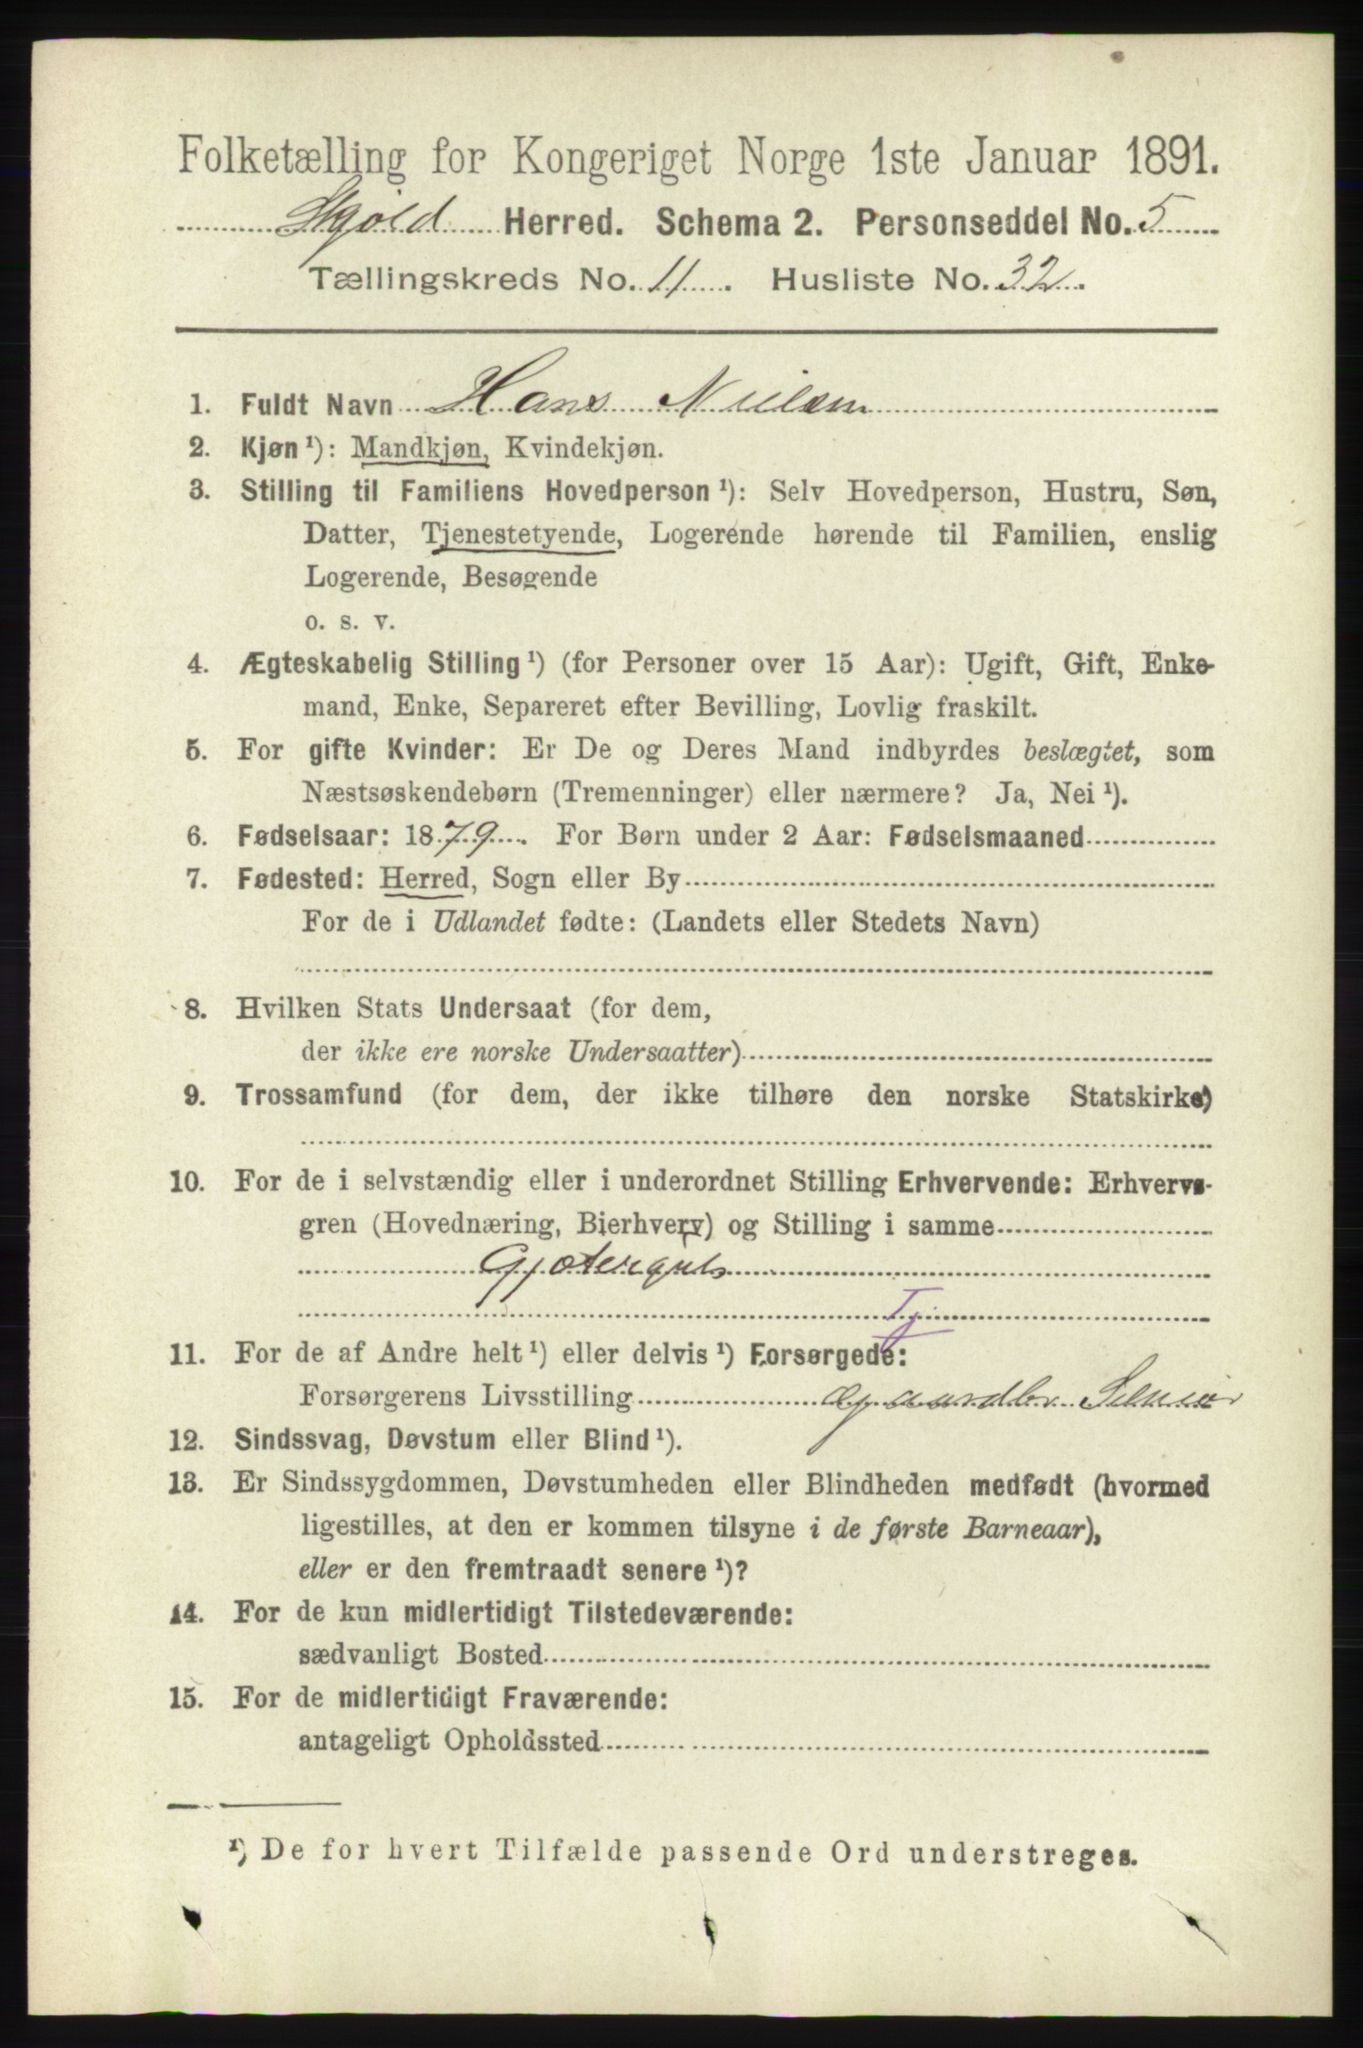 Folketælling for Kongeriget Norge 1ste Januar 1891.
Skjold Herred. Schema 2. Personseddel No. 5
Tællingskreds No. 11. Husliste No. 32.
1. Fuldt Navn Hans Nielsen
2. Kjøn¹): Mandkjøn, Kvindekjøn.
3. Stilling til Familiens Hovedperson¹): Selv Hovedperson, Hustru, Søn,
Datter, Tjenestetyende, Logerende hørende til Familien, enslig
Logerende, Besøgende
o. s. v.
4. Ægteskabelig Stilling¹) (for Personer over 15 Aar): Ugift, Gift, Enke-
mand, Enke, Separeret efter Bevilling, Lovlig fraskilt.
5. For gifte Kvinder: Er De og Deres Mand indbyrdes beslægtet, som
Næstsøskendebørn (Tremenninger) eller nærmere? Ja, Nei¹).
6. Fødselsaar: 1879. For Børn under 2 Aar: Fødselsmaaned
7. Fødested: Herred, Sogn eller By
For de i Udlandet fødte: (Landets eller Stedets Navn)
8. Hvilken Stats Undersaat (for dem,
der ikke ere norske Undersaatter)
9. Trossamfund (for dem, der ikke tilhøre den norske Statskirke)
10. For de i selvstændig eller i underordnet Stilling Erhvervende: Erhvervs-
gren (Hovednæring, Bierhverv) og Stilling i samme
Gjætergut
Tj
11. For de af Andre helt¹) eller delvis¹) Forsørgede:
Forsørgerens Livsstilling Gaardbr.
12. Sindssvag, Døvstum eller Blind¹).
13. Er Sindssygdommen, Døvstumheden eller Blindheden medfødt (hvormed
ligestilles, at den er kommen tilsyne i de første Barneaar),
eller er den fremtraadt senere¹)?
14. For de kun midlertidigt Tilstedeværende:
sædvanligt Bosted
15. For de midlertidigt Fraværende:
antageligt Opholdssted
¹) De for hvert Tilfælde passende Ord understreges.